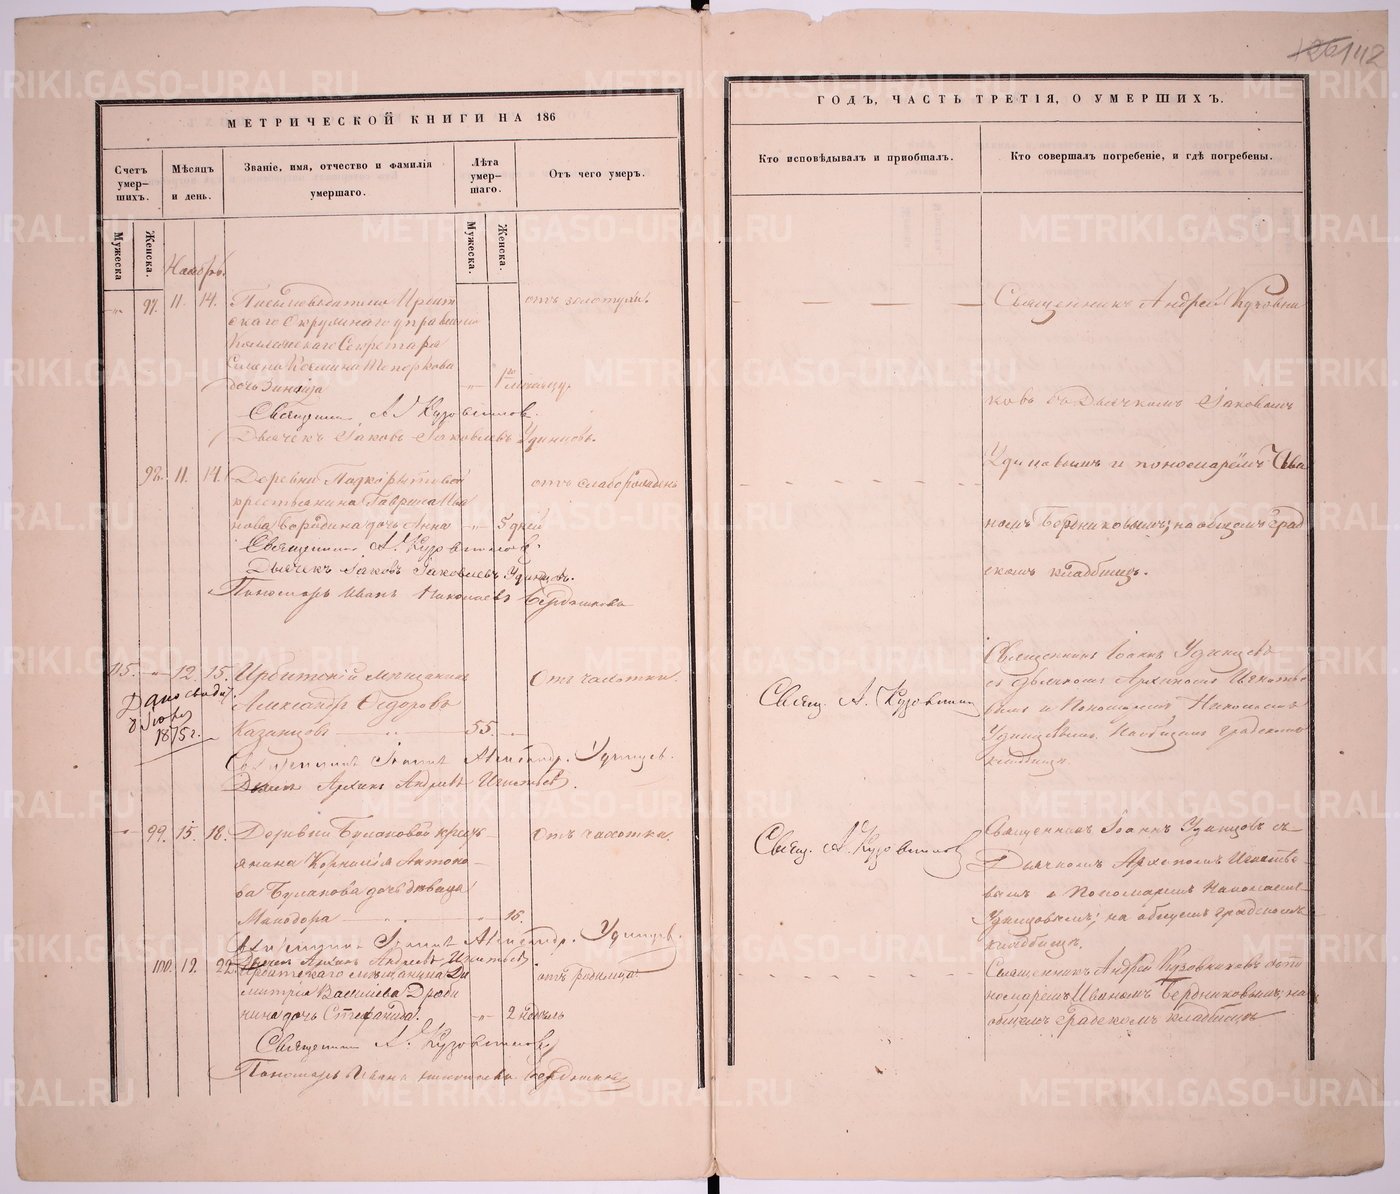 142
МЕТРИЧЕСКОЙ КНИГИ НА 186
Счетъ умер-шихъ.
Мѣсяцъ и день.
Званіе, имя, отчество и фамилія умершаго.
Лѣта умер-шаго.
Отъ чего умеръ.
Мужеска
Женска.
Мужеска.
Женска.
Ноябрь.
97. 11. 14.
скаго Окружнаго управленія
Секретаря
дочь Зинаида
1 мѣсяцу.
отъ золотухи.
Священникъ А. Кузовниковъ.
Дьячекъ Іаковъ Іаковлевъ Удинцовъ.
98. 11. 14. Деревни
крестьянина Гаврила Ива
нова Бородина дочь Анна 5 дней
Священникъ А. Кузовниковъ.
Дьячекъ Іаковъ Іаковлевъ Удинцовъ.
Пономарь Иванъ Николаевъ Бердниковъ
115. 12. 15. Ирбитскій мѣщанинъ
Александръ Ѳедоровъ
Казанцовъ 55.
Отъ чахотки.
8 Іюня
1875 г.
Священникъ Іоаннъ Александр. Удинцевъ.
Дьячекъ Архипъ Андреевъ Игнатьевъ.
99. 15. 18. Деревни Булановой крестъ-
янина Корнилія Антоно-
ва Буланова дочь дѣвица
16.
Отъ чахотки.
Священникъ Іоаннъ Александр. Удинцевъ.
Дьячекъ Архипъ Андреевъ Игнатьевъ
100. 19. 22. Ирбитскаго мѣщанина Ди
митрія Васильева
нина дочь Стефанида. 2 недѣль
отъ родимца
Священникъ А. Кузовниковъ
Пономарь Иванъ Николаевъ Бердниковъ
ГОДЪ, ЧАСТЬ ТРЕТІЯ, О УМЕРШИХЪ.
Кто исповѣдывалъ и пріобщалъ.
Кто совершалъ погребеніе, и гдѣ погребены.
Священникъ Андрей Кузовни
ковъ съ Дьячкомъ Іаковомъ
Удинцовымъ и пономаремъ Ива
номъ Бердниковымъ; на общемъ град
скомъ кладбищѣ.
Свящ. А. Кузовниковъ
Священникъ Іоаннъ Удинцевъ
съ дьячкомъ Архипомъ Игнатье
вымъ и Пономаремъ Николаемъ
Удинцевымъ. На общемъ градскомъ
кладбищѣ.
Свящ. А. Кузовниковъ
Священникъ Іоаннъ Удинцовъ съ
Дьячкомъ Архипомъ Игнатье-
вымъ и Пономаремъ Николаемъ
Удинцовымъ; на общемъ градскомъ
кладбищѣ.
Священникъ Андрей Кузовниковъ съ по
номаремъ Иваномъ Бердниковымъ; на
общемъ градскомъ кладбищѣ
METRIKI.GASO-URAL.RU